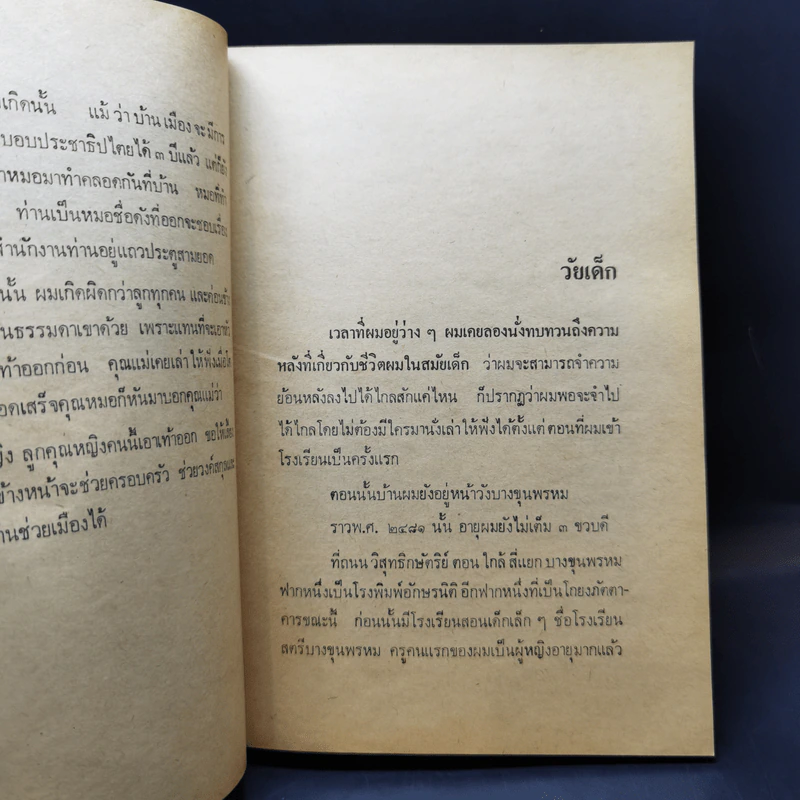 เกิดนั้น แม้ว่าบ้านเมืองจะมีการ
บอบประชาธิปไตยได้ ๓ ปีแล้ว แต่ก็ยัง
หมอมาทำคลอดกันที่บ้าน หมอที่ทำ
ท่านเป็นหมอชื่อดังที่ออกจะชอบเรื่อง
สำนักงานท่านอยู่แถวประตูสามยอด
นั้น ผมเกิดผิดกว่าลูกทุกคน และค่อนข้าง
นธรรมดาเขาด้วย เพราะแทนที่จะเอาหัว
ท้าออกก่อน คุณแม่เคยเล่าให้ฟังเมื่อโต
อดเสร็จคุณหมอก็หันมาบอกคุณแม่ว่า
ญิง ลูกคุณหญิงคนนี้เอาเท้าออก ขอให้เลี้ยง
ข้างหน้าจะช่วยครอบครัว ช่วยวงศ์สกุลและ
านช่วยเมืองได้
วัยเด็ก
เวลาที่ผมอยู่ว่าง ๆ ผมเคยลองนั่งทบทวนถึงความ
หลังที่เกี่ยวกับชีวิตผมในสมัยเด็ก ว่าผมจะสามารถจำความ
ย้อนหลังลงไปได้ไกลสักแค่ไหน ก็ปรากฏว่าผมพอจะจำไป
ได้ไกลโดยไม่ต้องมีใครมานั่งเล่าให้ฟังได้ตั้งแต่ ตอนที่ผมเข้า
โรงเรียนเป็นครั้งแรก
ตอนนั้นบ้านผมยังอยู่หน้าวังบางขุนพรหม
ราวพ.ศ. ๒๔๘๑ นั้น อายุผมยังไม่เต็ม ๓ ขวบดี
ที่ถนน วิสุทธิกษัตริย์ ตอน ใกล้ สี่แยก บางขุนพรหม
ฟากหนึ่งเป็นโรงพิมพ์อักษรนิติ อีกฟากหนึ่งที่เป็นโกยงภัตตา-
คารขณะนี้ ก่อนนั้นมีโรงเรียนสอนเด็กเล็ก ๆ ชื่อโรงเรียน
สตรีบางขุนพรหม ครูคนแรกของผมเป็นผู้หญิงอายุมากแล้ว